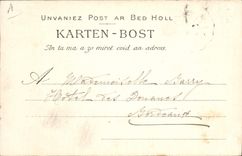 Unvaniez Post ar Bed Holl
KARTEN-BOST
An tu ma a zo miret evid an adres.
A Mademoiselle Barry
Hôtel des Douanes
Bordeaux